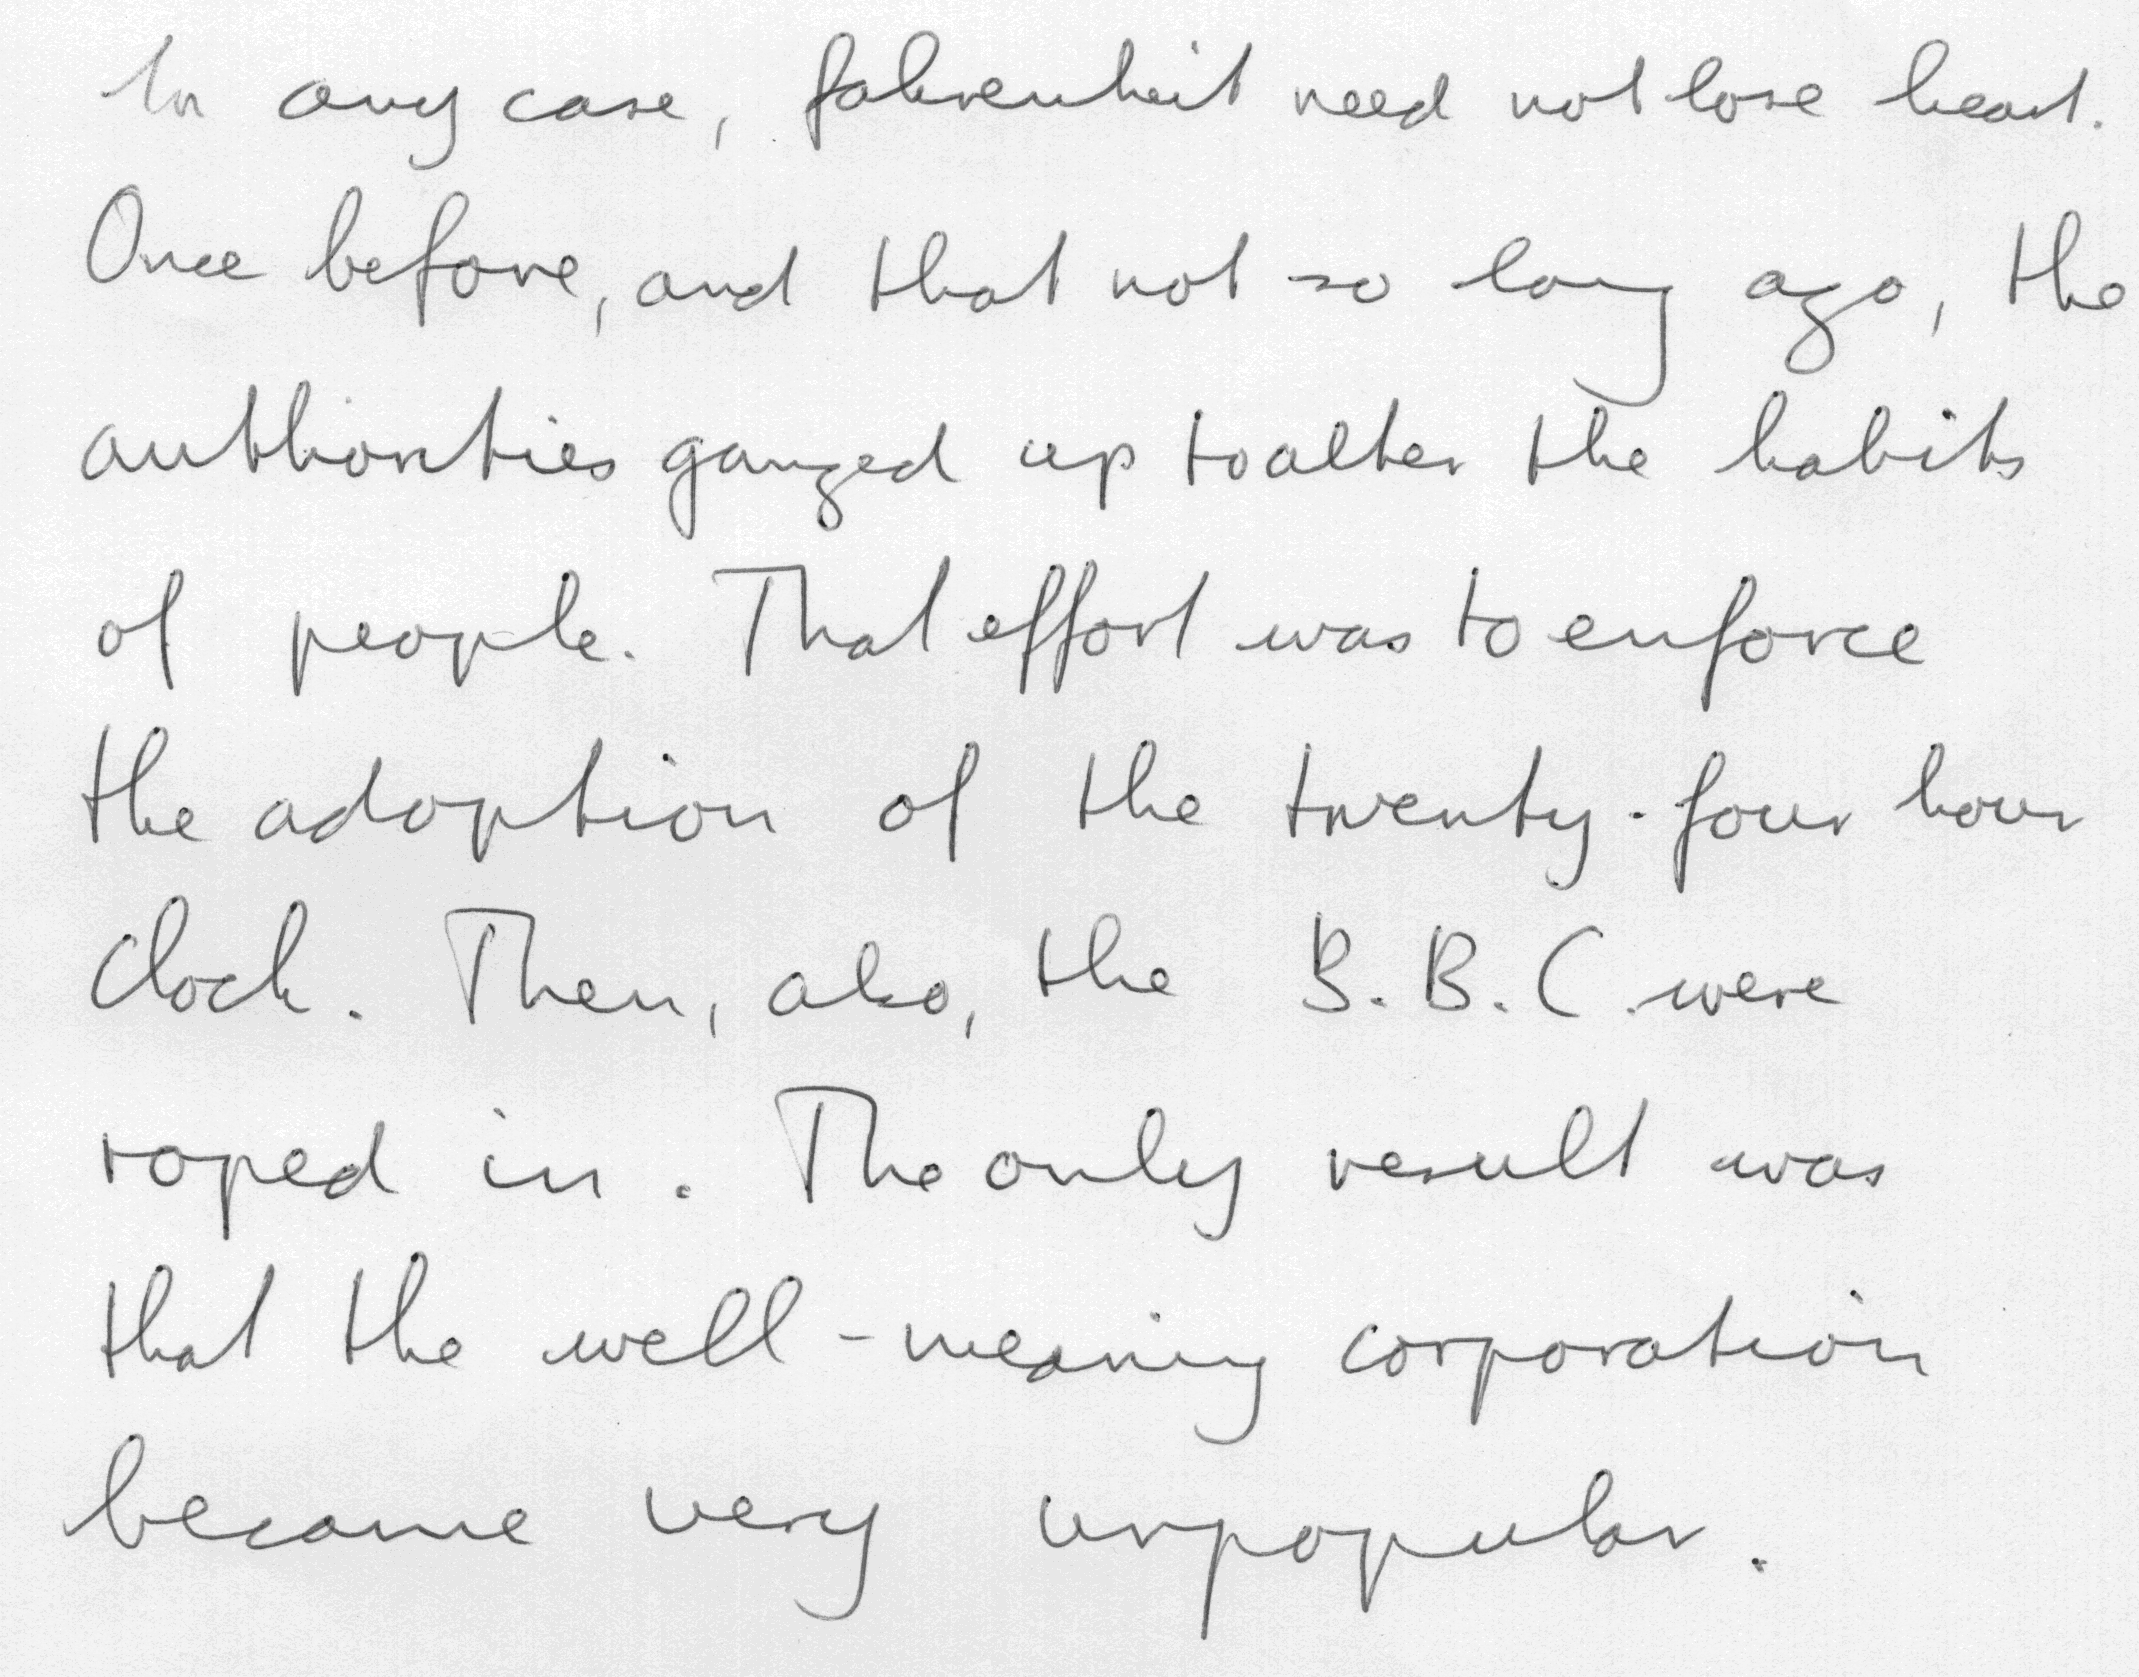 In any case, fahrenheit need not lose heart.
Once before, and that not so long ago, the
authorities ganged up to alter the habits
of people. That effort was to enforce
the adoption of the twenty-four hour
clock. Then, also, the B.B.C. were
roped in. The only result was
that the well-meaning corporation
became very unpopular.